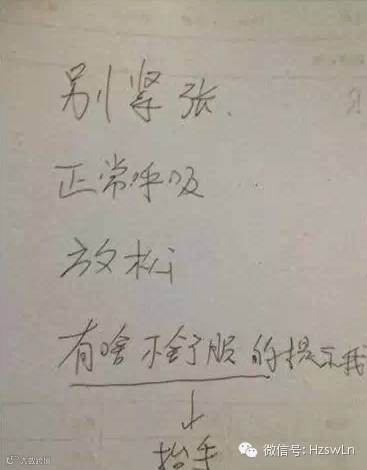 别紧张.
正常呼吸
放松
有啥不舒服的提示我
↓
抬手
微信号: HzswLn
大数跨境